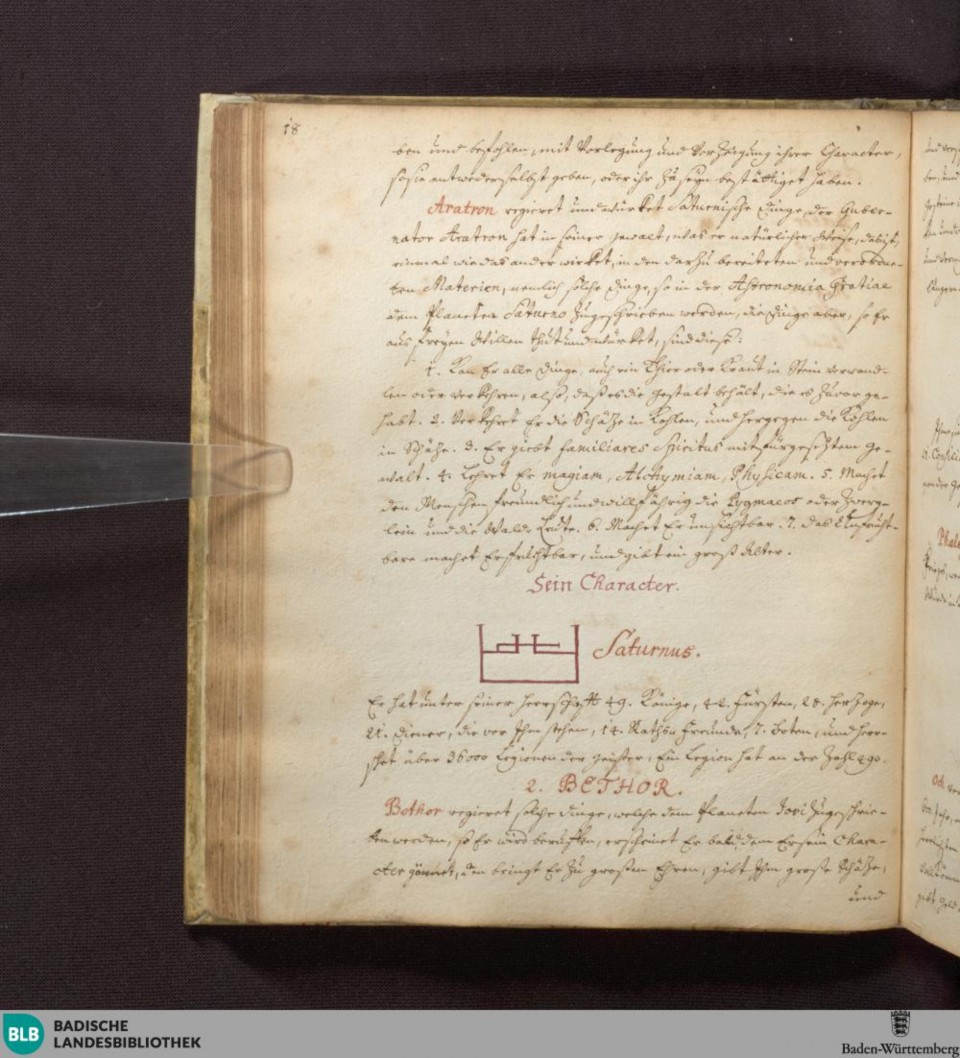 18
ben und befohlen, mit Vorlegung und Vorzeigung ihrer Character,
so sie entweder selbst geben, oder ihr zu seyn bestättiget haben.
Aratron regieret und würket Saturnische Dinge, der Guber-
nator Aratron hat in seiner gewalt, was er natürlicher Weise, das ist,
einmal wie das ander wirket, in den darzu bereiteten und verordne-
ten Materien, nemlich solche Dinge, so in der Astronomia Gratiae
dem Planeten Saturno zugeschrieben werden, die Dinge aber, so Er
aus freyen Willen thut und würket, sind diese:
1. Kan Er alle Dinge, auch ein Thier oder Kraut in Stein verwand-
len oder verkehren, also, daß es die gestalt behält, die es zuvor ge-
habt. 2. Verkehret Er die Schätze in Kohlen, und hergegen die Kohlen
in Schätze. 3. Er giebt familiares Spiritus mit fürgesetztem Ge-
walt. 4. Lehret Er magiam, Alchymiam, Physicam. 5. Machet
den Menschen freundlich und willfährig die Pygmaeos oder Zwerg-
lein und die Wald-Leute. 6. Machet Er unsichtbar. 7. Das Unfrucht-
bare machet Er fruchtbar, und gibt ein groß Alter.
Sein Character.
Saturnus.
Er hat unter seiner Herrschafft 49. Könige, 42. Fürsten, 28. Herzoge,
21. Diener, die vor Ihm stehen, 14. Raths Freunde, 7. Boten, und herr-
schet über 36000 Legionen der geister, Ein Legion hat an der Zahl 490.
2. BETHOR.
Bethor regieret solche Dinge, welche dem Planeten Jovi zugeschrie-
ben werden, so Er wird beruffen, erscheinet Er bald, dem Er sein Chara-
cter gönnet, den bringt Er zu grossen Ehren, gibt Ihm grosse Schätze,
und
BLB
BADISCHE
LANDESBIBLIOTHEK
Baden-Württemberg